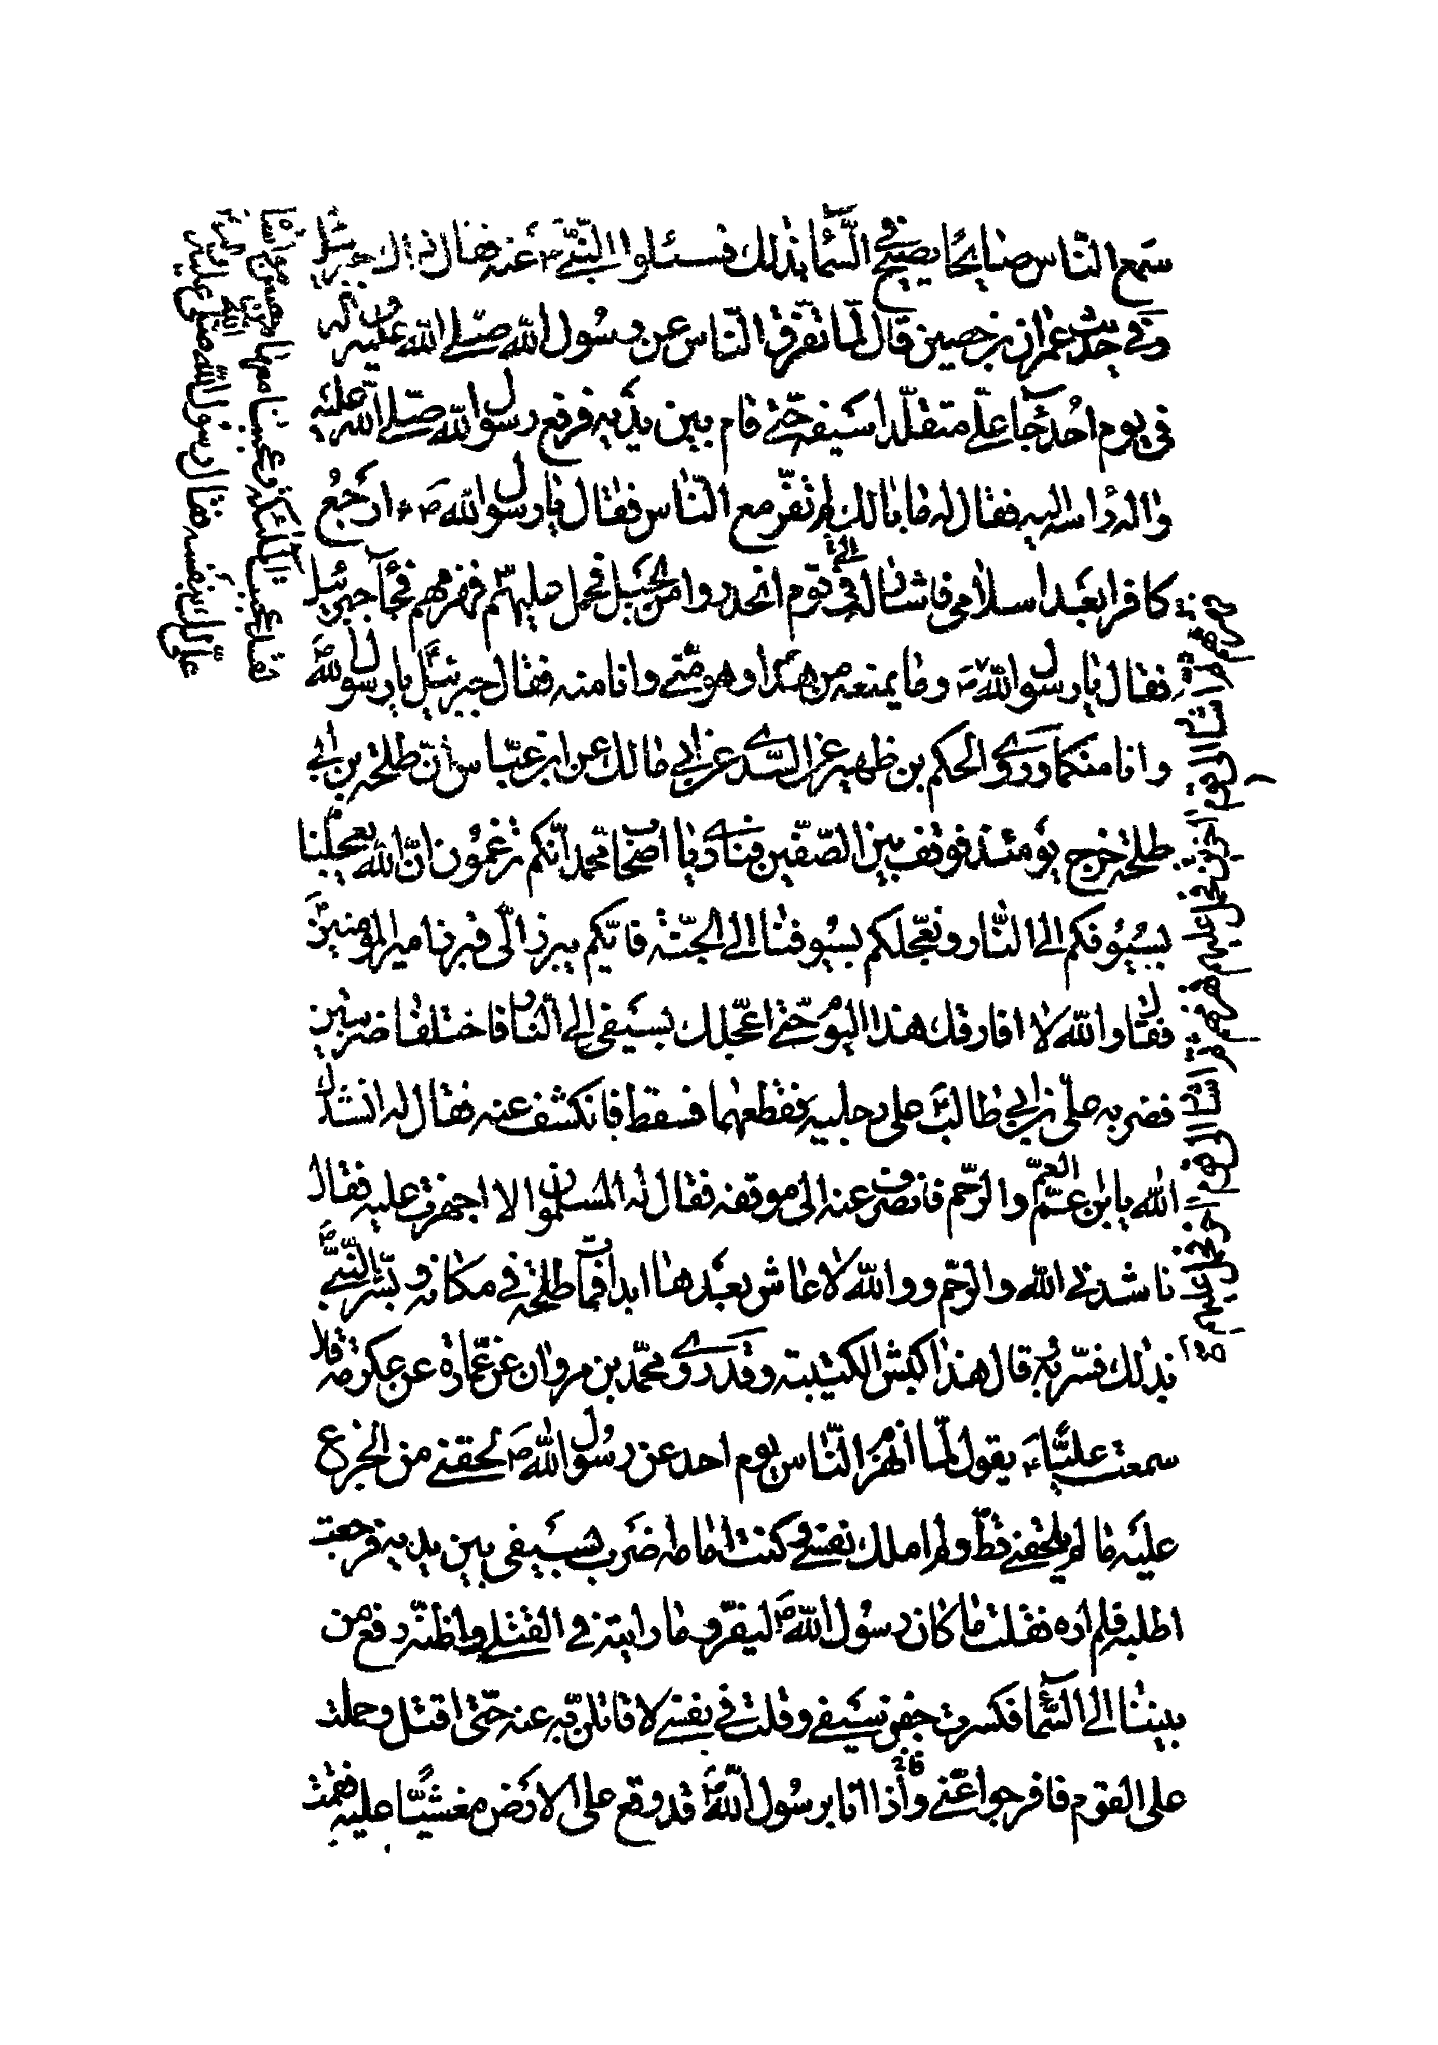 سمع النّاس صايحًا يصيح في السّماء بذلك فسئلوا النّبيّ ص عنه فقال ذاك جبرئيل
وفي حديث عمران بن حصين قال لمّا تفرّق النّاس عن رسول الله صلّى الله عليه وآله
في يوم احد جاء عليّ متقلّدا سيفه حتّى قام بين يديه فرفع رسول الله صلّى الله عليه
واله راسه اليه فقال له ما بالك لم تفرّ مع النّاس فقال يا رسول الله ص ءارجع
كافرا بعد اسلامي فاشار له الى قوم انحدروا من الجبل فحمل عليهم فهزمهم فجاء جبرئيل
فقال يا رسول الله ص وما يمنعه من هذا وهو منّي وانا منه فقال جبرئيل يا رسول الله ص
وانا منكما وروى الحكم بن ظهير عن السّدي عن ابي مالك عن ابن عبّاس انّ طلحة بن ابي
طلحة خرج يومئذ فوقف بين الصّفّين فنادى يا اصحاب محمد انّكم تزعمون انّ الله يعجّلنا
بسيوفكم الى النّار ونعجّلكم بسيوفنا الى الجنّة فايّكم يبرز الّي فبرز امير المؤمنين
فقال والله لا افارقك هذا اليوم حتّى اعجّلك بسيفي الى النّار فاختلفا ضربتين
فضربه علي بن ابي طالب ع على رجليه فقطعهما فسقط فانكشف عنه فقال له انشدك
الله يا بن عمّ والرّحم فانصرف عنه الى موقفه فقال له المسلمون الا اجهزت عليه فقال
ناشدني الله والرّحم ووالله لا عاش بعدها ابدا فمات طلحة في مكانه وبشّر النّبيّ ص
بذلك فسّر به وقال هذا كبش الكتيبة وقد روى محمّد بن مروان عن عمارة عن عكرمة قال
سمعت عليّا ع يقول لمّا انهزم النّاس يوم احد عن رسول الله ص لحقني من الجزع
عليه ما لم يلحقني قطّ ولم املك نفسي وكنت امامه اضرب بسيفي بين يديه فرجعت
اطلبه فلم اره فقلت ما كان رسول الله ص ليفرّ وما رايته في القتلى واظنّه رفع من
بيننا الى السّماء فكسرت جفن سيفي وقلت في نفسي لاقاتلنّ به عنه حتّى اقتل وحملت
على القوم فافرجوا عنّي واذا انا برسول الله ص قد وقع على الارض مغشيّا عليه فقمت
ثم اشار الى قوم اخرين فحمل عليهم فهزمهم ثم اشار الى قوم اخر فحمل عليهم
لقد عجبت الملئكة وعجبنا معها من حسن مواساة
عليّ لك بنفسه فقال رسول الله صلّى الله عليه وآله